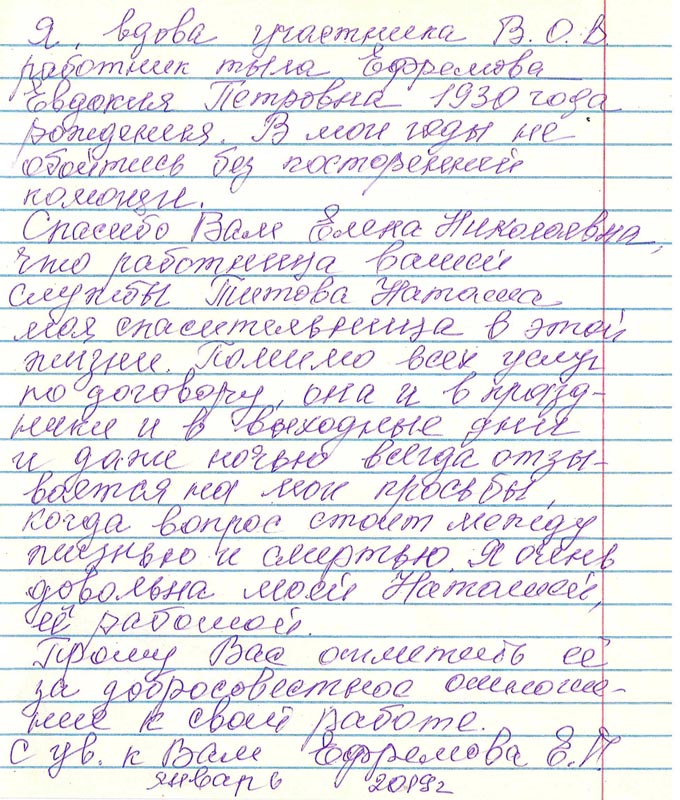 Я, вдова участника В.О.В.
работник тыла Ефремова
Евдокия Петровна 1930 года
рождения. В мои годы не
обойтись без посторенней
помощи.
Спасибо Вам Елена Николаевна,
что работница вашей
службы Титова Наташа
моя спасительница в этой
жизни. Помимо всех услуг
по договору, она и в празд-
ники и в выходные дни
и даже ночью всегда отзы-
вается на мои просьбы,
когда вопрос стоит между
жизнью и смертью. Я очень
довольна моей Наташей,
её работой.
Прошу Вас отметить её
за добросовестное отноше-
ние к своей работе.
С ув. к Вам Ефремова Е.П.
январь 2019г